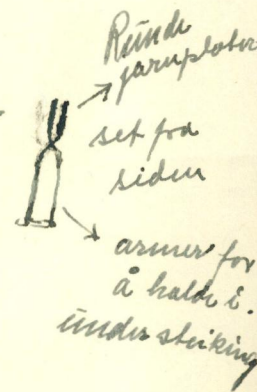 Runde
jarnplater
set fra
siden
armer for
å halde i.
under steiking